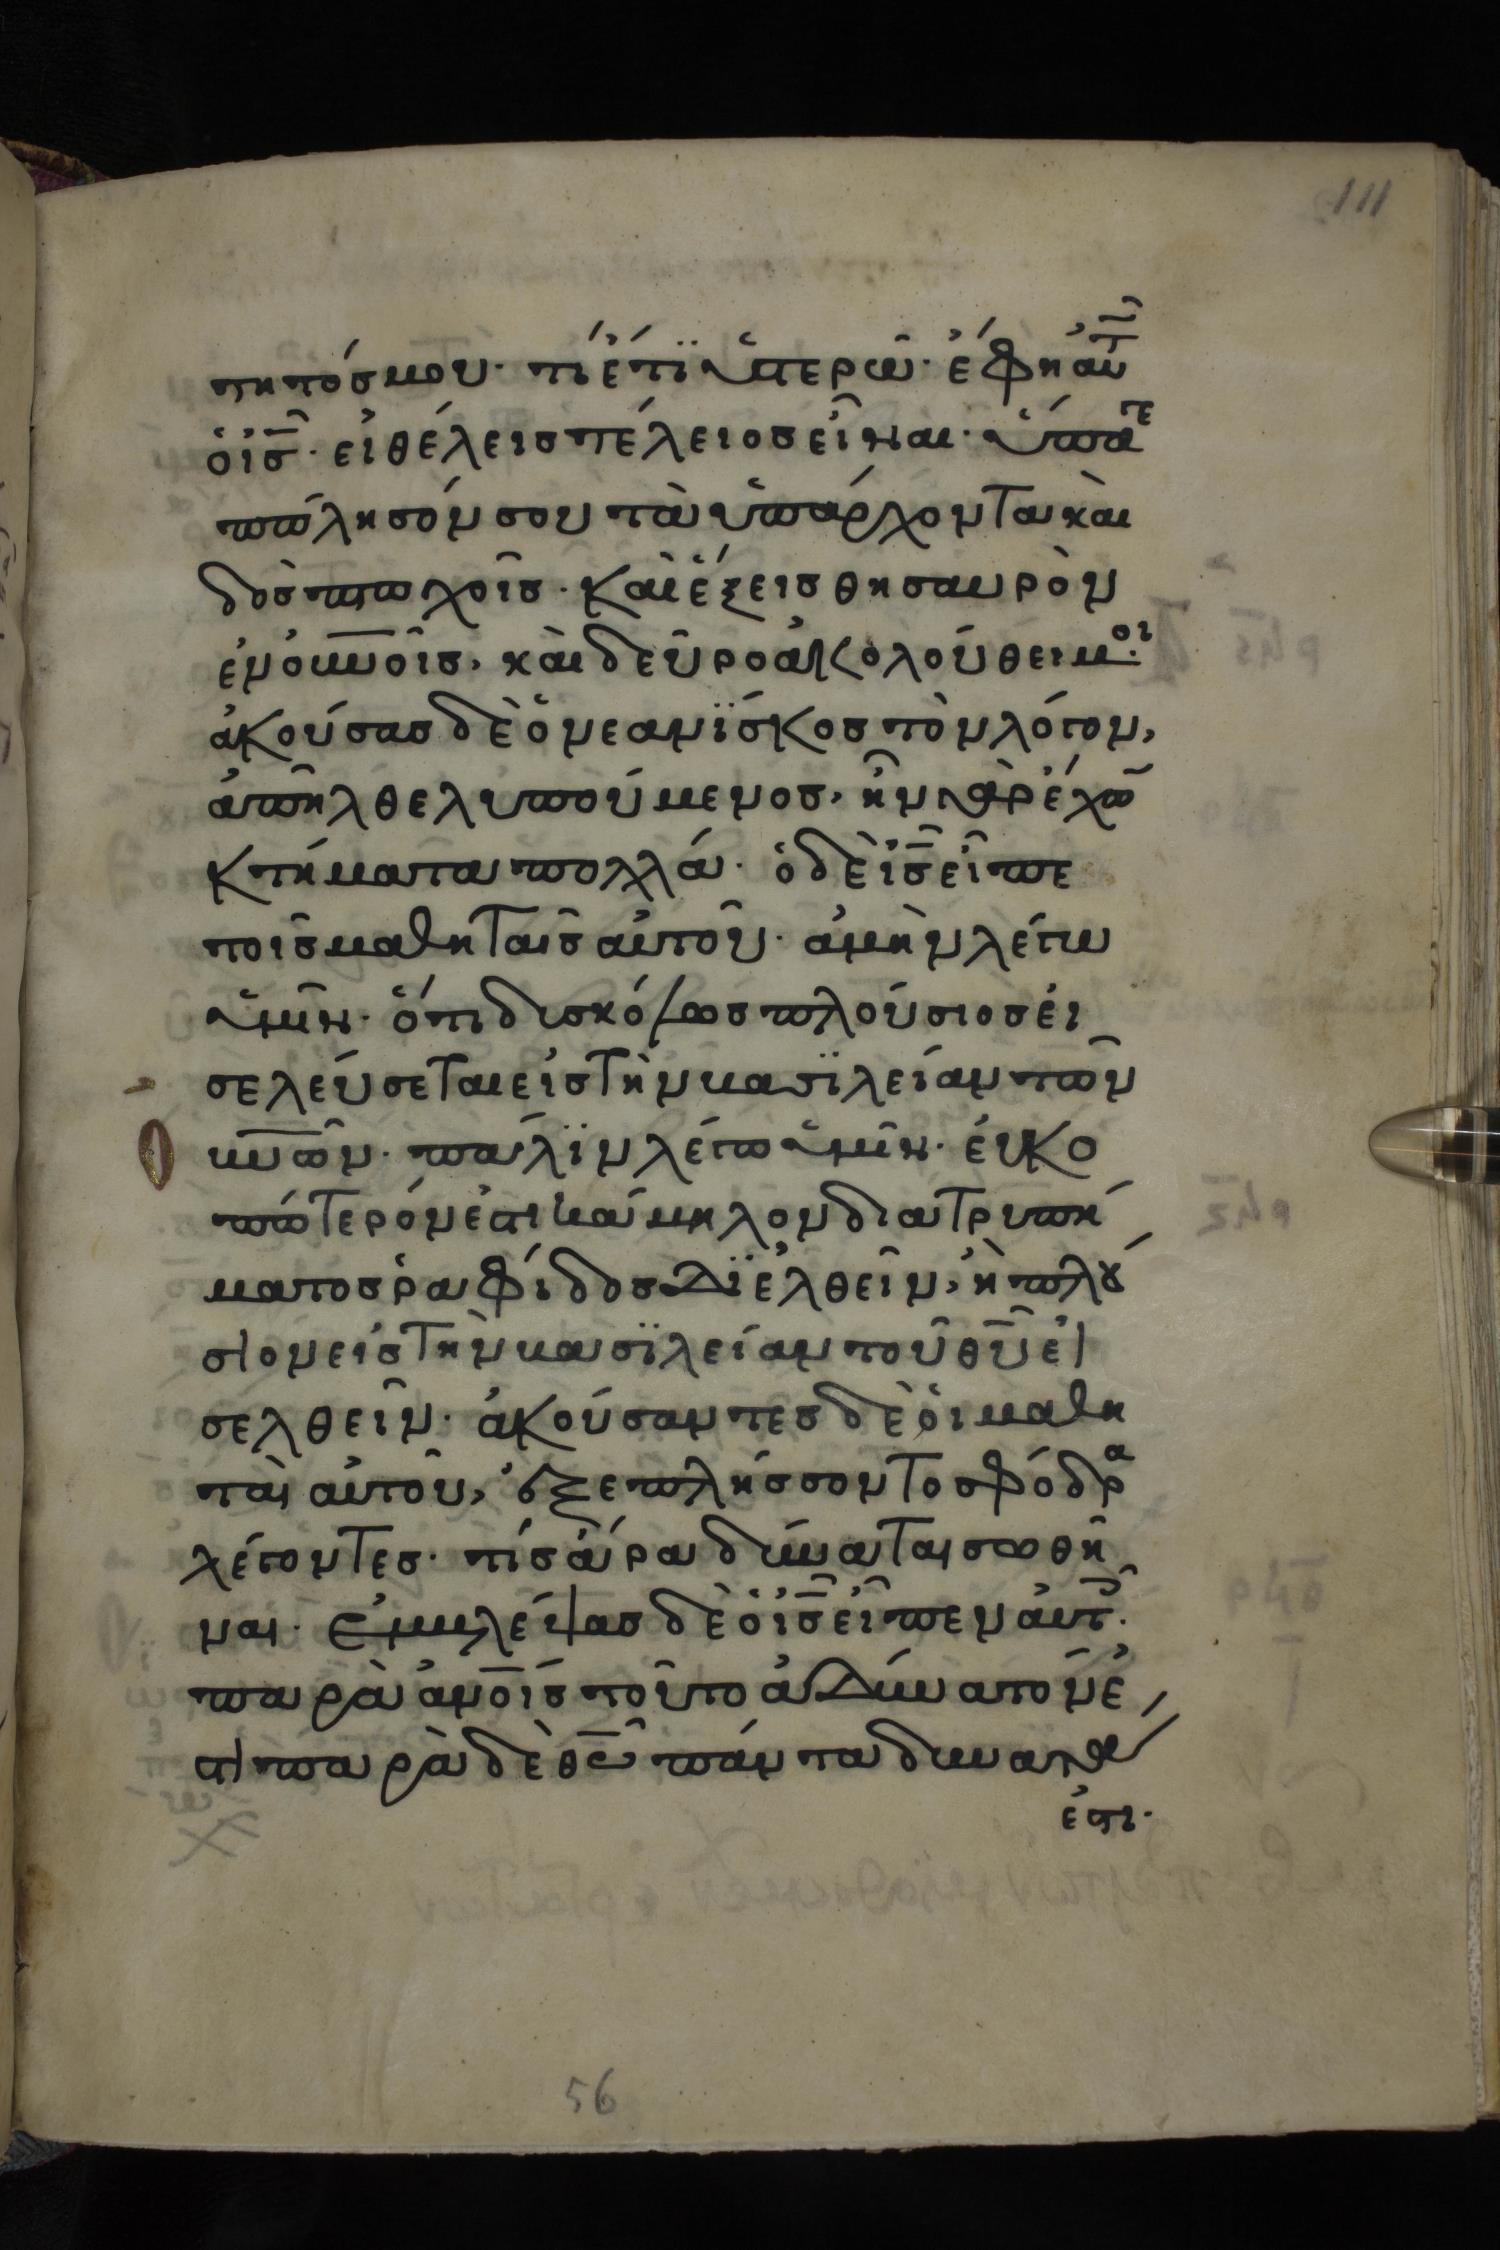 111
τητόσ μου· τί ἔτι ὑστερῶ· ἔφη αὐτ
ὁ ι̅σ̅· εἰ θέλεισ τέλειοσ εἶναι· ὕπαγε
πώλησόν σου τὰ ὑπάρχοντα καὶ
δὸσ πτωχοῖσ· καὶ ἕξεισ θησαυρὸν
ἐν ο̅υ̅ν̅οῖσ, καὶ δεῦρο ἀκολούθει μοι·
ἀκούσασ δὲ ὁ νεανΐσκοσ τὸν λόγον,
ἀπῆλθε λυπούμενοσ, ἦν γὰρ ἔχω̅
κτήματα πολλά· ὁ δὲ ι̅σ̅ εἶπε
τοῖσ μαθηταῖσ αὐτοῦ· ἀμὴν λέγω
ὑμῖν· ὅτι δυσκόλωσ πλούσιοσ εἰ
σελεύσεται εἰσ τὴν βασϊλείαν τῶν
ο̅υ̅ν̅ῶν· πάλϊν λέγω ὑμῖν· εὐκο
πώτερόν ἐστι κάμηλον διὰ τρυπή
ματοσ ῥαφίδοσ δϊελθεῖν, ἢ πλού
σιον εἰσ τὴν βασϊλείαν τοῦ θ̅υ̅ εἰ
σελθεῖν· ἀκούσαντεσ δὲ ὁι μαθη
ταὶ αὐτοῦ, ἐξεπλήσσοντο σφόδρα
λέγοντεσ· τίσ ἄρα δύναται σωθῆ
ναι· ἐμβλέψασ δὲ ὁ ι̅σ̅ εἶπεν αὐτ·
παρὰ ἀν̅οισ τοῦτο ἀδύνατόν ἐ
στι παρὰ δὲ θ̅ω̅ πάντα δυνατά
ἐστι·
56